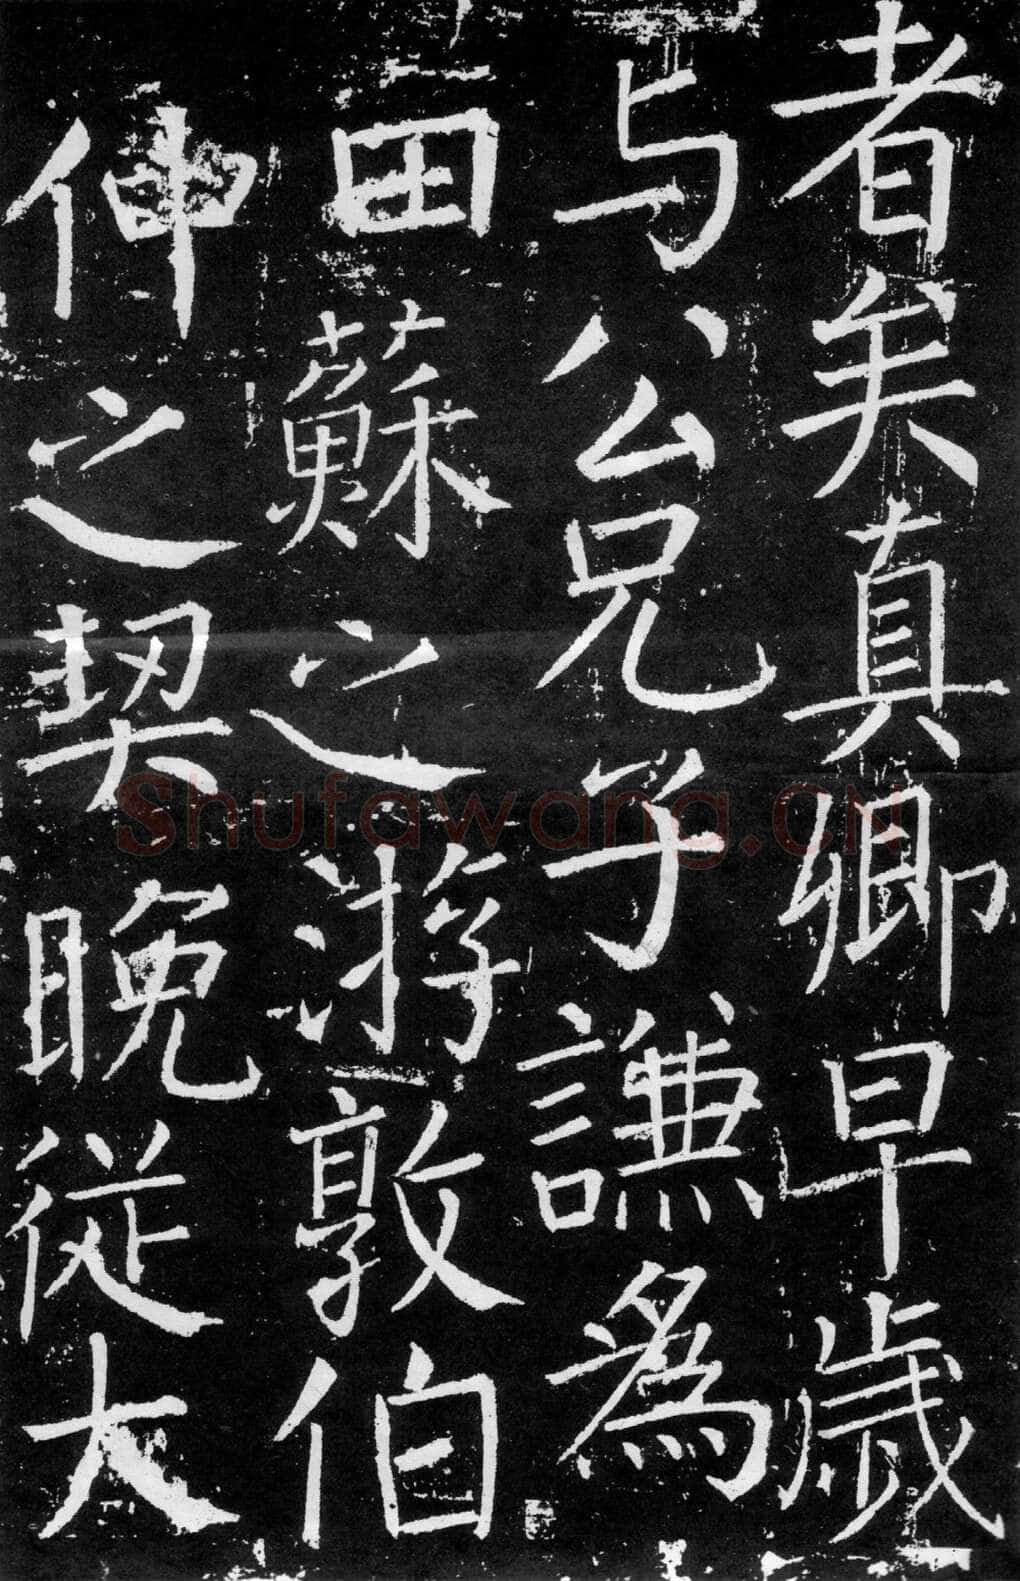 者矣真卿早歳
与公兄子謙為
田蘇之游敦伯
仲之契晚従大
Shufawang.CN